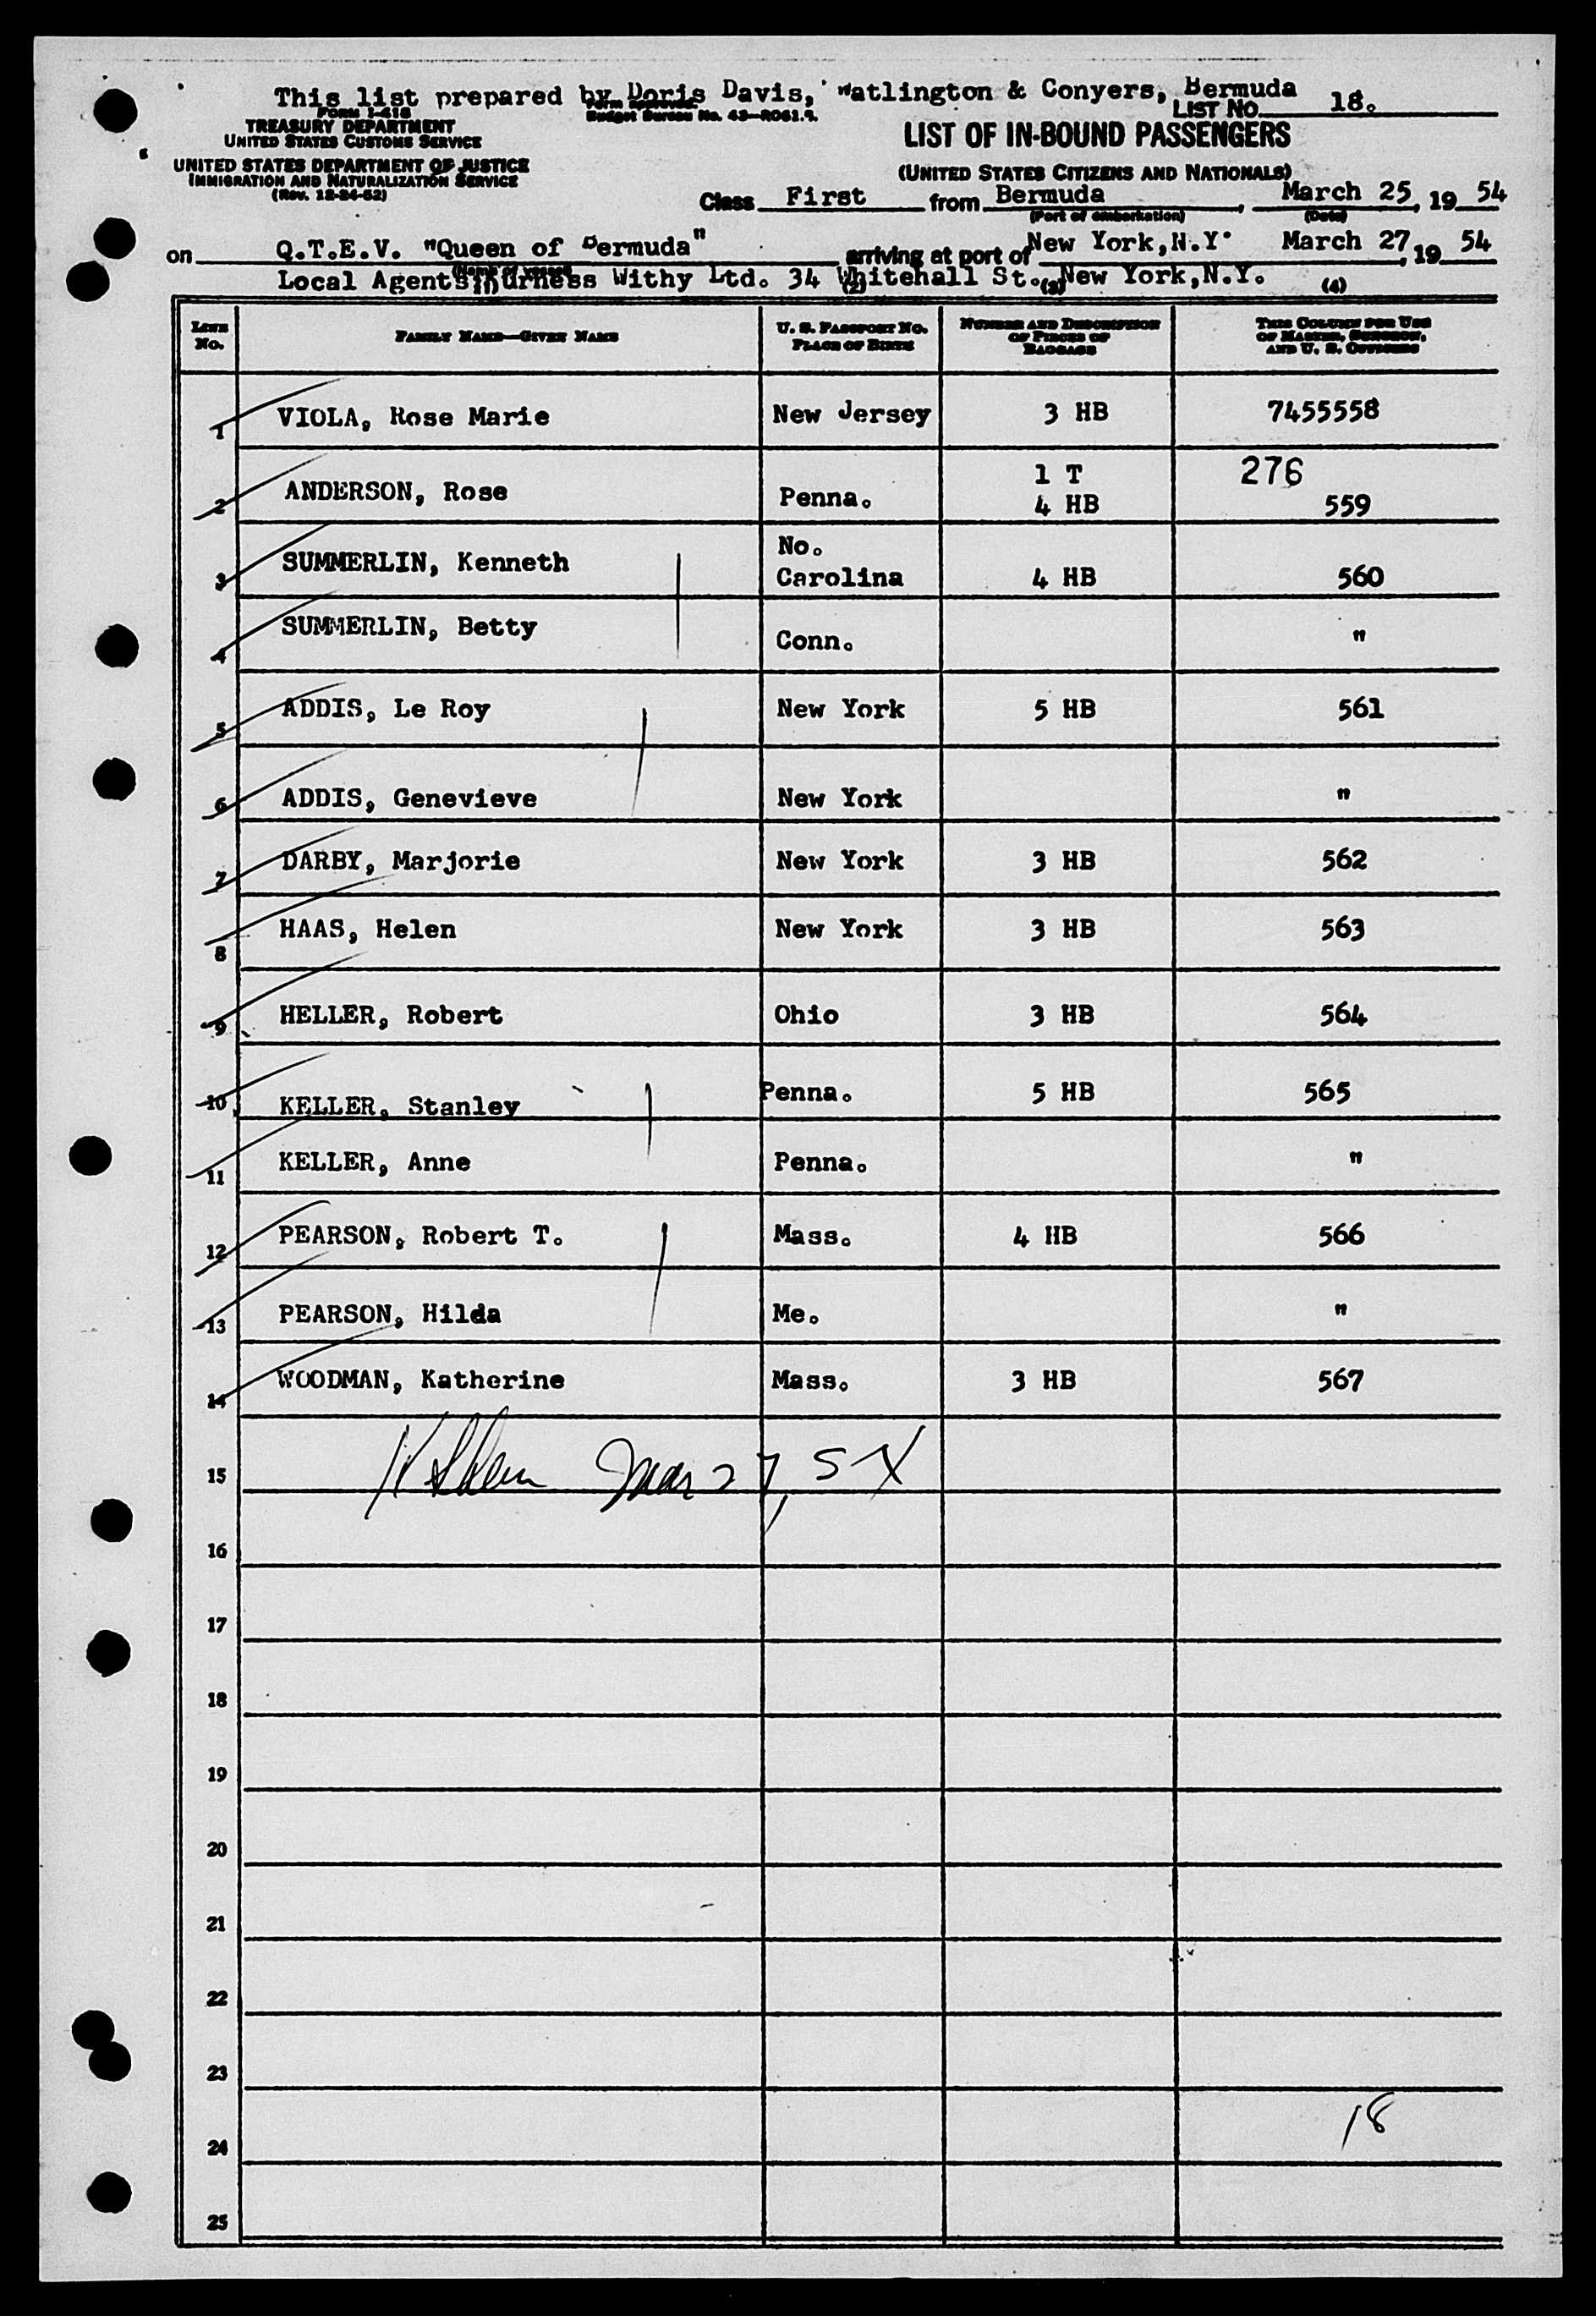 This list prepared by Doris Davis, Watlington & Conyers, Bermuda
FORM I-416
Form approved.
Budget Bureau No. 43—R061.
LIST NO. 18.
TREASURY DEPARTMENT
UNITED STATES CUSTOMS SERVICE
LIST OF IN-BOUND PASSENGERS
UNITED STATES DEPARTMENT OF JUSTICE
IMMIGRATION AND NATURALIZATION SERVICE
(Rev. 12-24-52)
(UNITED STATES CITIZENS AND NATIONALS)
Class First from Bermuda, March 25, 19 54
(Port of embarkation) (Date)
on Q.T.E.V. "Queen of Bermuda" arriving at port of New York, N.Y. March 27, 19 54
(Name of vessel)
Local Agents Furness Withy Ltd. 34 Whitehall St., New York, N.Y.
(1) (2) (3) (4)
LINE NO. FAMILY NAME—GIVEN NAME U. S. PASSPORT NO. PLACE OF BIRTH NUMBER AND DESCRIPTION OF PIECES OF BAGGAGE THIS COLUMN FOR USE OF MASTER, SURGEON, AND U. S. OFFICERS
1 VIOLA, Rose Marie New Jersey 3 HB 7455558
1 T 276
2 ANDERSON, Rose Penna. 4 HB 559
No.
3 SUMMERLIN, Kenneth Carolina 4 HB 560
4 SUMMERLIN, Betty Conn. "
5 ADDIS, Le Roy New York 5 HB 561
6 ADDIS, Genevieve New York "
7 DARBY, Marjorie New York 3 HB 562
8 HAAS, Helen New York 3 HB 563
9 HELLER, Robert Ohio 3 HB 564
10 KELLER, Stanley Penna. 5 HB 565
11 KELLER, Anne Penna. "
12 PEARSON, Robert T. Mass. 4 HB 566
13 PEARSON, Hilda Me. "
14 WOODMAN, Katherine Mass. 3 HB 567
15 Mar 27, 54
16
17
18
19
20
21
22
23
18
24
25